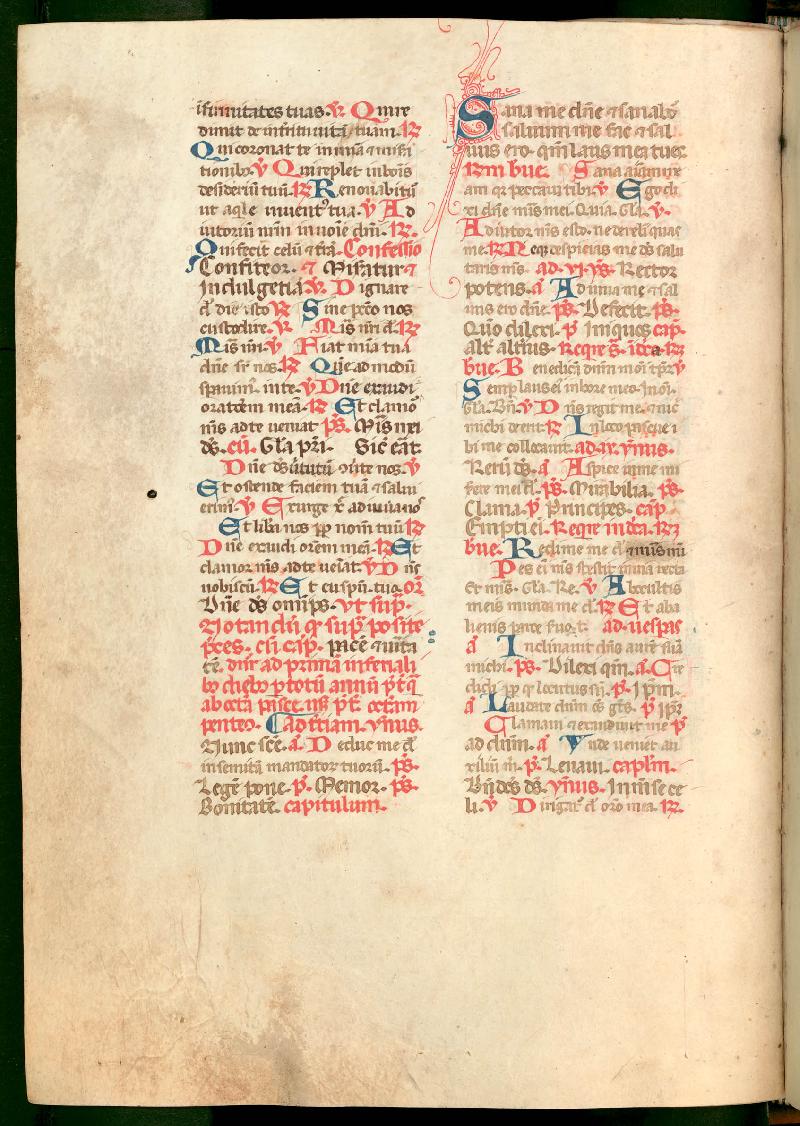 ifirmitates tuas. v. Qui re
dimit de interitu vitā tuam. R
Qui coronat te in mīa & misēr
tionibȝ. v Qui replet in boīs
desideriū tuū. R Renouabitur
ut aqīe iuuent tua. v Ad
iutoriū nr̄m in noīe dnī. R.
Qui fecit celū & trā. Confessio
Confiteor. & Misatur &
Indulgētiā v. D ignare
dn̄e die isto R Sine pctō nos
custodire. v. Mis nr̄i dn̄e R
Mis nr̄i. v Fiat mīa tua
dn̄e sr nos. R Quē ad modū
sperauim in te. v Dn̄e exaudi
oratōem meā. R Et clamo
ms ad te ueniat ps. Mis mei
ds. cū. Gla pri. Sic eāt
Dn̄e ds ūtutū ꝯuerte nos. v
Et ostende faciem tuā & salui
erim. v Exurge xp̄e adiuua nos
Et liba nos pp nom̄ tuū R
Dn̄e exaudi orōem meā. R Et
clamor ms ad te ueiat. v Dn̄s
uobiscū. R Et cū spū. tuo. or̄
Dn̄e ds om̄ps. vt sup.
Notandū q sup posite
pces. cū cap. pacē & uita
tē. dn̄r ad primā in feriali
bȝ diebȝ p totū annū pt q
ab octa pasce usq̄ pt. octam
pentec. Ad tciam. ymus.
Nunc scē. a. Deduc me dn̄e
in semitā mandatoȝ tuorū. ps.
Legē pone. p. Memor. ps.
Bonitatē capitulum.
Sana me dn̄e & sanabor
saluum me fac & sal
uus ero. qm̄ laus mea tu es
Rm bue. Sana animam
am qr peccaui tibi. v Ego di
xi dn̄e mis mei. Quia. Gla. v.
Adiutor ms esto. ne derelīquas
me. R Neqȝ despicias me ds salu
taris ms. ad. vi. ys. Rector
potens. a Adiuua me & sal
uus ero dn̄e. ps. Defecit. ps.
Quō dilexi. p Iniquos cap.
Alt altius. Reqre s. ītra R
bue. Benedicā dn̄m in oī tpr v
Semp laus ei in ore meo. In oī.
Gla. Bn̄. v Dn̄s regit me. & nic
michi deerit. R In loco pascue i
bi me collocauit. ad. ix. ymus.
Rerū ds. a Aspice in me mi
serere mei dn̄e. ps. Mirabilia. ps.
Clama. p Principes. cap.
Empti ei. Reqre intra. R
bue. Redime me dn̄e & mis mi
Pes ei ms stetit in uia recta
Et mis. Gla. Re. v Ab occultis
meis munda me dn̄e. R Et ab a
lienis parce suo. t. ad uespas
a Inclinauit dn̄s aure suā
michi. ps. Dilexi qm̄. a. Cre
didi pp q locutus sū. p. Ipm.
a Laudate dn̄m oēs gtes. p ipm
Clamaui & exaudiuit me p
ad dn̄m. a Unde ueniet au
xiliū m. p. Leuaui. caplm.
Bn̄dcs ds. ymus. In mse ce
li. v Dirigat dn̄e oro mea. R.